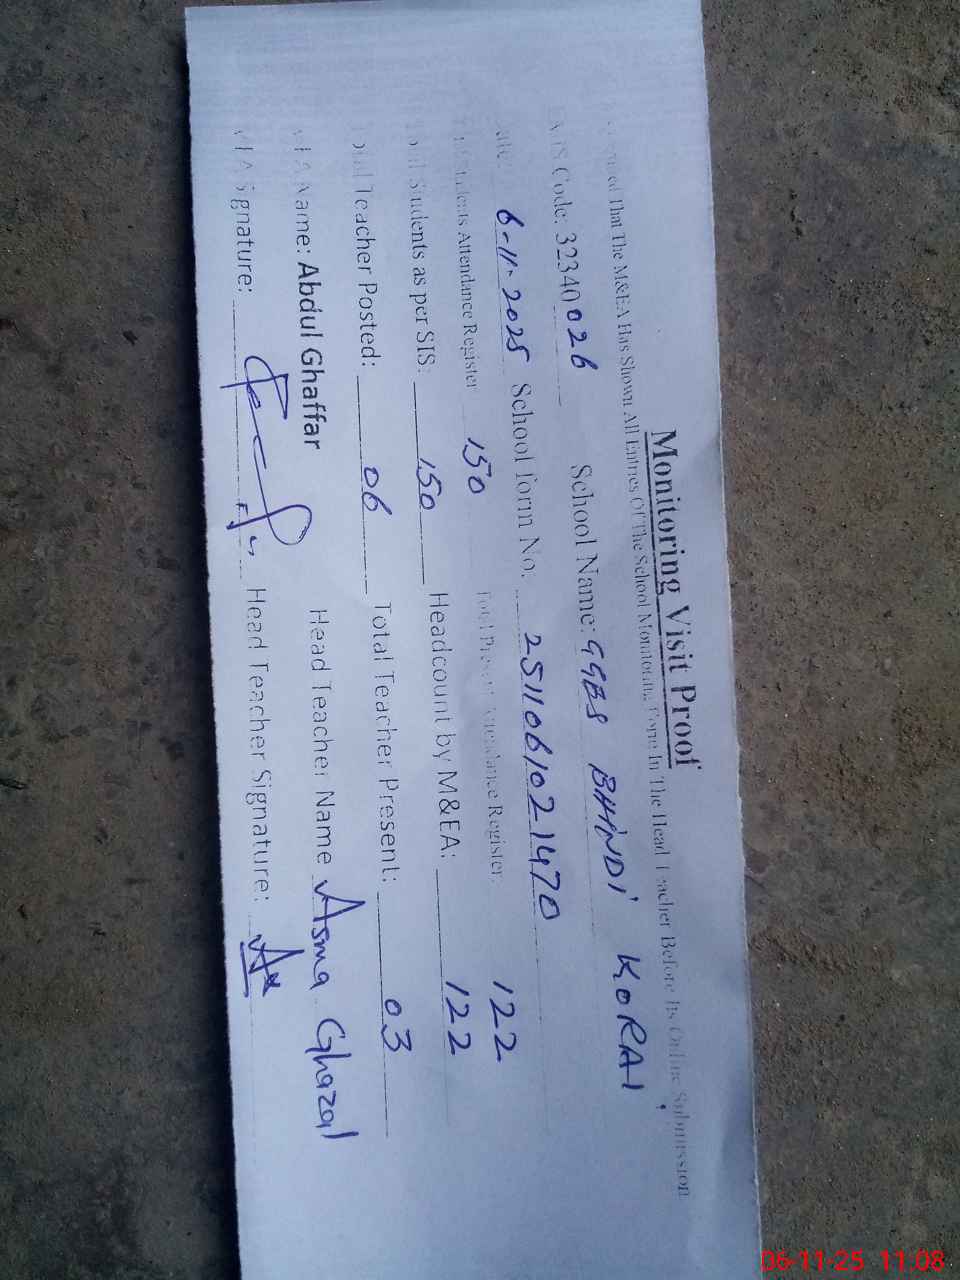 Monitoring Visit Proof
That The M&EA Has Shown All Entries Of The School Monitoring Done In The Head Teacher Before Its Online Submission
Code: 32340026 School Name: GGES BHINDI KORAI
6-11-2025 School form No: 2511061021470
Students Attendance Register 150 Total Present Attendance Register: 122
Students as per SIS: 150 Headcount by M&EA: 122
Teacher Posted: 06 Total Teacher Present: 03
Name: Abdul Ghaffar Head Teacher Name Asma Ghazal
Signature: Head Teacher Signature:
06-11-25 11:08